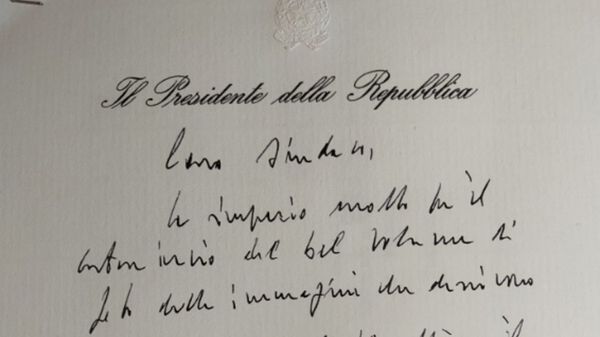 Il Presidente della Repubblica
Caro Sindaco,
la ringrazio molto per il
invio del bel volume di
foto delle immagini che descrivono